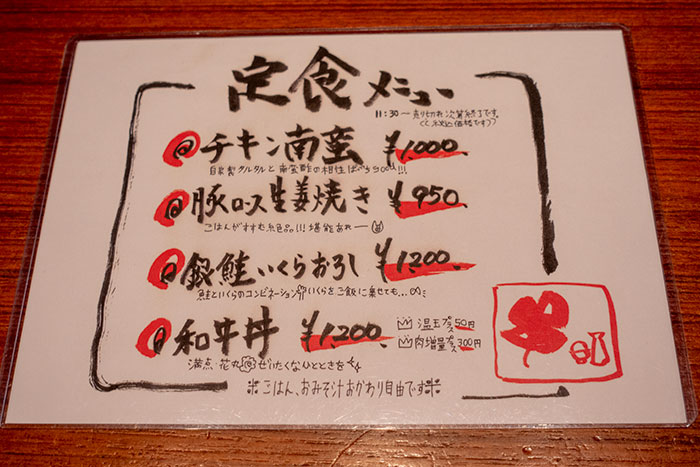 定食メニュー
11:30〜売り切れ次第終了です。
(税込価格です)
チキン南蛮 ¥1,000.
自家製タルタルと南蛮酢の相性ばっちりGOO!!!
豚ロース生姜焼き ¥950
ごはんがすすむ絶品!!! 堪能あれー
銀鮭いくらおろし ¥1,200.
鮭といくらのコンビネーション いくらをご飯に乗せても…
和牛丼 ¥1,200.
満点 花丸 ぜいたくなひとときを
温玉プラス50円
肉増量プラス300円
※ごはん、おみそ汁おかわり自由です※